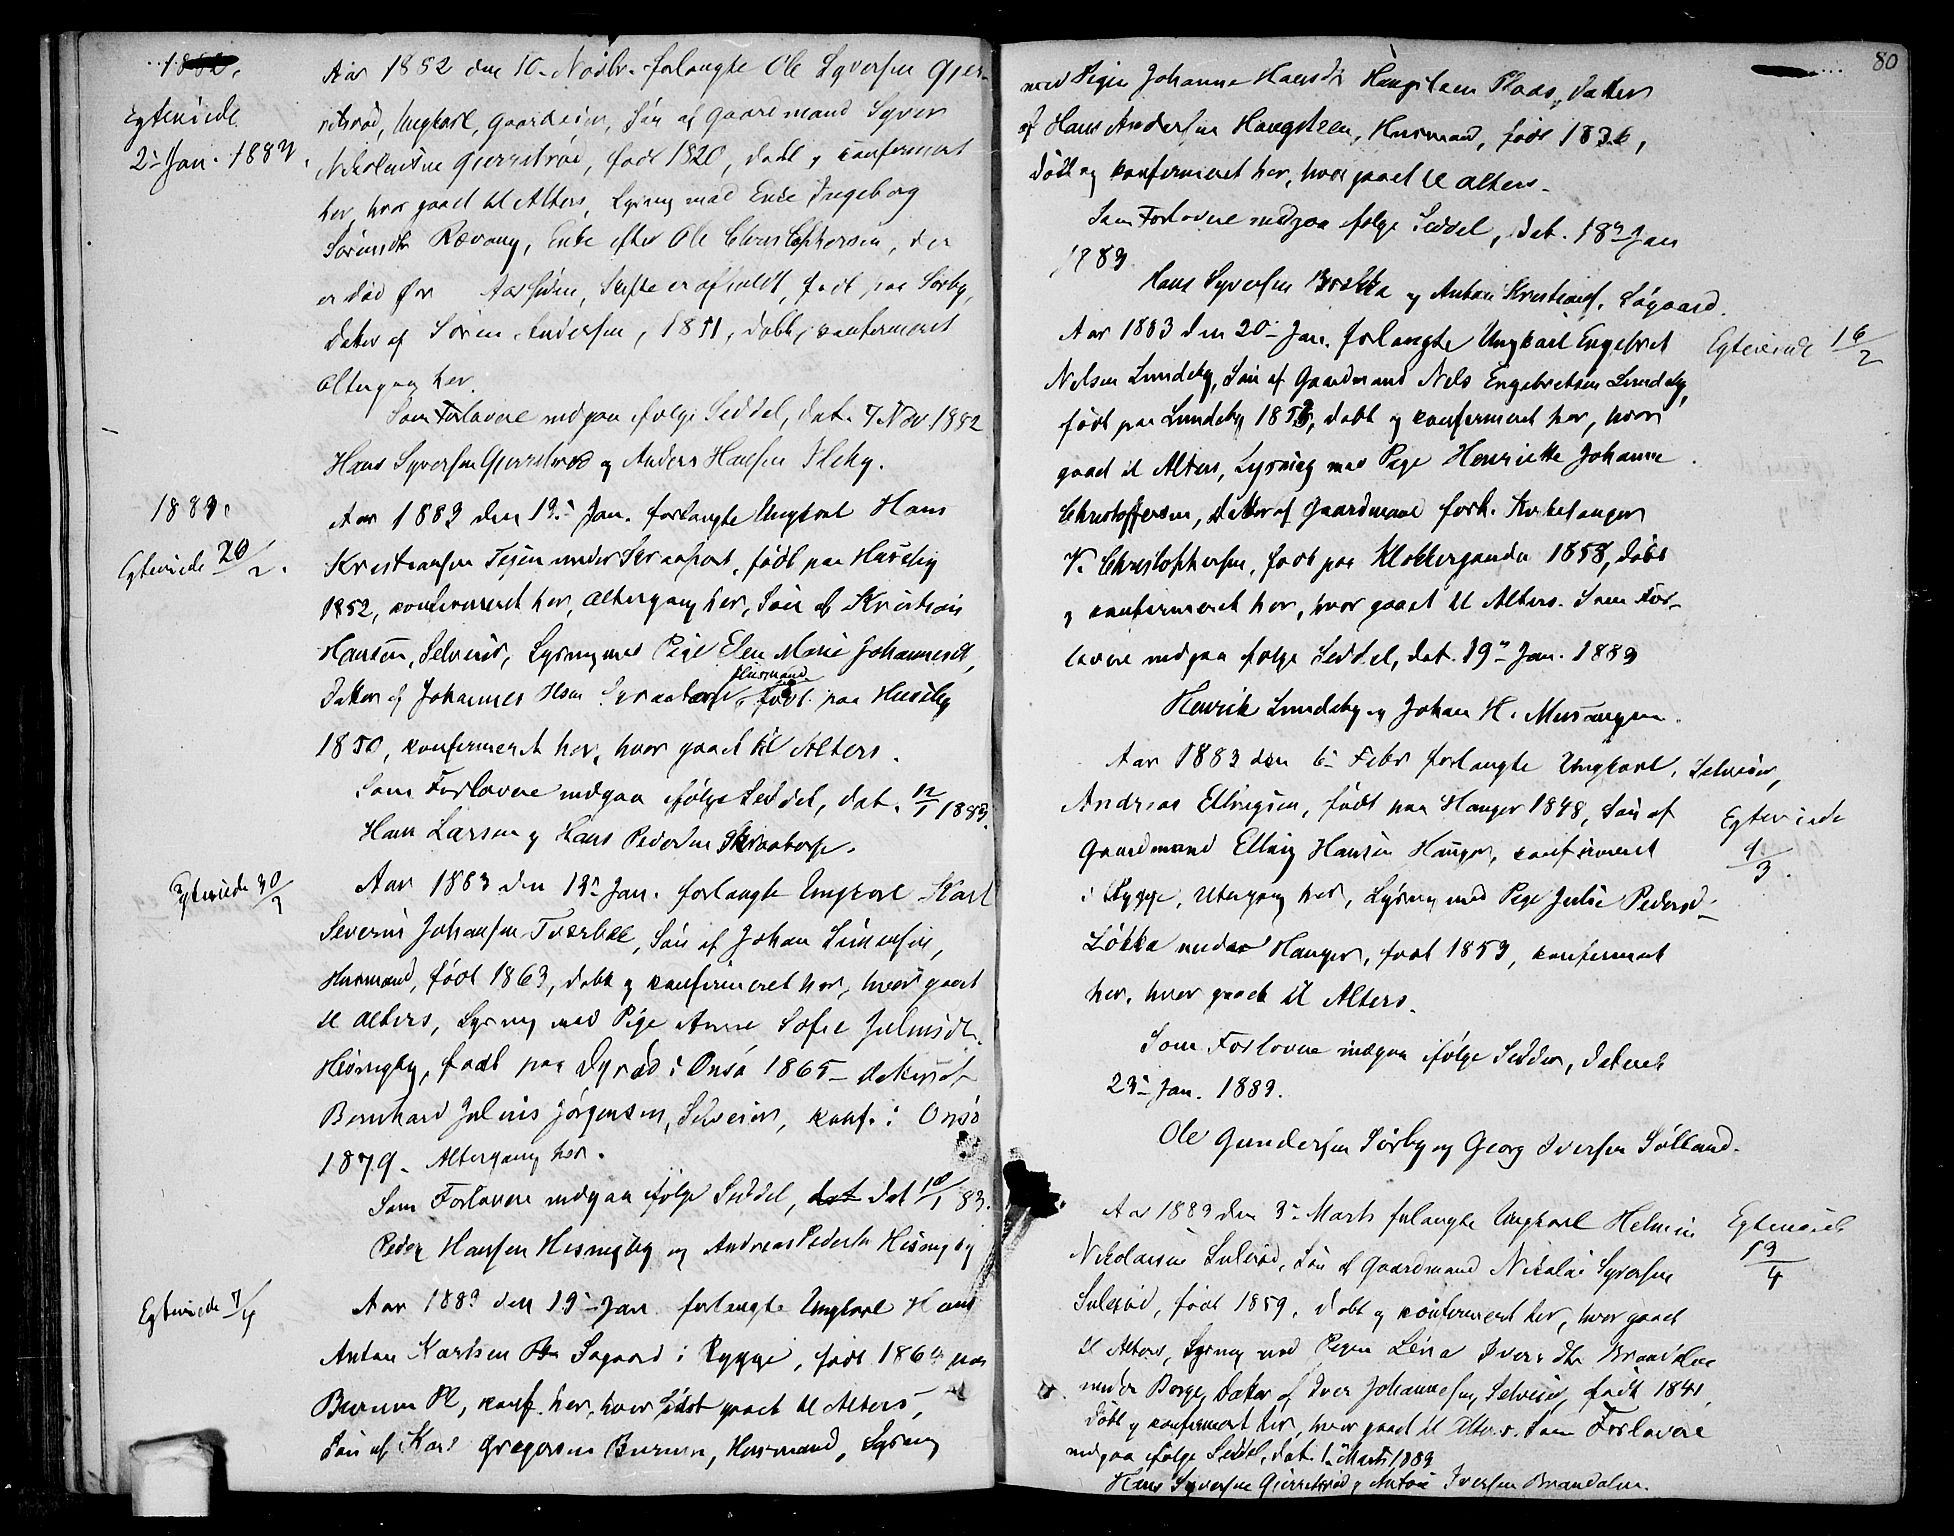 80
1882.
Egteviede
2- Jan. 1883.
Aar 1882 den 10- Novbr. forlangte Ole Syversen Gjer-
retsrød, Ungkarl, Gaardeier, Søn af Gaardmand Syver
Nikolaisen Gjerretsrød, født 1820, døbt og konfirmeret
her, hvor gaaet til Alters, Lysning med Enke Ingeborg
Sørensdtr. Rævaug, Enke efter Ole Christophersen, der
er død for Aar siden, Skifte er afholdt, født paa Sørby,
Datter af Søren Andersen, 1851, døbt, konfirmeret
Altergang her.
Som Forlovere indgaa ifølge Seddel, dat. 7 Nov 1882
Hans Syversen Gjerretsrød og Anders Hansen Ileby.
1883.
Egteviede 20/2.
Aar 1883 den 13- Jan. forlangte Ungkarl Hans
Kristiansen Tejen under Skraatorp, født paa Huseby
1852, konfirmeret her, Altergang her, Søn af Kristian
Hansen, Selveier, Lysning med Pige Elen Marie Johannesdt,
Datter af Johannes Hsen Skraatorp, Husmand, født paa Huseby
1850, konfirmeret her, hvor gaaet til Alters.
Som Forlovere indgaa ifølge Seddel, dat. 12/1 1883.
Hans Larsen og Hans Pedersen Skraatorp.
Egteviede 30/3
Aar 1883 den 13- Jan. forlangte Ungkarl Karl
Severin Johansen Tværbæk, Søn af Johan Simensen,
Husmand, født 1863, døbt og konfirmeret her, hvor gaaet
til Alters, Lysning med Pige Anne Sofie Juliusdt.
Hesnegby, født paa Dyrød i Onsø 1865 - datter af
Bernhard Julius Jørgensen, Selveier, konf. i Onsø
1879. Altergang her.
Som Forlovere indgaa ifølge Seddel, dat dat 10/1 83.
Peder Hansen Hesnegby og Andreas Peders. Hesnegby
Egteviede 7/4
Aar 1883 den 19- Jan forlangte Ungkarl Hans
Anton Karlsen Søgaard i Rygge, født 186 paa
Burum Pl, konf. her, hvor sidst gaaet til Alters,
Søn af Karl Gregersen Burum, Husmand, Lysning
med Pigen Johanne Hansdtr Haugsteen Plads, Datter
af Hans Andersen Haugsteen, Husmand, født 1836,
døbt og konfirmeret her, hvor gaaet til Alters.
Som Forlovere indgaa ifølge Seddel, dat. 18- Jan
1883
Hans Syversen Brekke og Anton Kristians. Søgaard.
Egteviede 16/2
Aar 1883 den 20- Jan. forlangte Ungkarl Engebret
Nelsen Lundeby, Søn af Gaardmand Nels Engebretsen Lundeby,
født paa Lundeby 185, døbt og konfirmeret her, hvor
gaaet til Alters, Lysning med Pige Henriette Johanne
Christoffersen, Datter af Gaardmand forh. Kirkesanger
N. Christophersen, født paa Klokkergaarden 1858, døbt
og konfirmeret her, hvor gaaet til Alters. Som For-
lovere indgaa ifølge Seddel, dat. 19- Jan. 1883
Henrik Lundeby og Johan H. Mustangen.
Egteviede
4/3.
Aar 1883 den 6- Febr forlangte Ungkarl, Selveier,
Andreas Ellingsen, født paa Hauger 1848, Søn af
Gaardmand Elling Hansen Hauger, konfirmeret
i Rygge, Altergang her, Lysning med Pige Julie Pedersd-
Løkka under Hauger, født 1853, konfirmeret
her, hvor gaaet til Alters.
Som Forlovere indgaa ifølge Seddel, dateret
23- Jan. 1883.
Ole Gundersen Sørby og Georg Iversen Sølland.
Egteviede
13/4
Aar 1883 den 3- Marts forlangte Ungkarl Helmin
Nikolaisen Sulerød, Søn af Gaardmand Nikolai Syversen
Sulerød, født 1859, døbt og konfirmeret her, hvor gaaet
til Alters, Lysning med Pigen Lena Iversdtr Brandalen
under Borge, Datter af Iver Johannesen, Selveier, født 1841,
døbt og konfirmeret her, hvor gaaet til Alters. Som Forlovere
indgaa ifølge Seddel, dat. 1- Marts 1883
Hans Syversen Gjerretsrød og Anton Iversen Brandalen.